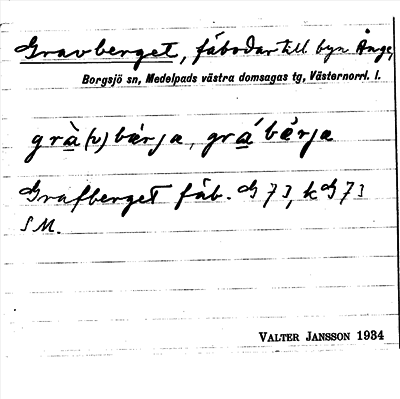 Gravberget, fäbodar till byn Ånge,
Borgsjö sn, Medelpads västra domsagas tg, Västernorrl. l.
grà(v)bær ja, grábærja
Grafberget fäb. G 73, kG 73
SM.
VALTER JANSSON 1934